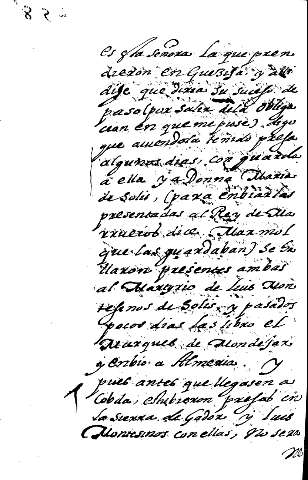 es esta señora la que pren
dieron en Guecija y alli
dije que diria su suceso de
paso (por salir de la obliga
cion en que me puse) Digo
que aviendola tenido presa
algunos dias, con guarda
a ella, y a Donna Maria
de Solis, (para enbiarlas
presentadas al Rey de Ma
rruecos dice Marmol
que las guardaban) Se En
llaron presentes ambas
al Martyrio de luis Mon
tesinos de Solis y pasados
pocos dias las libro el
Marques de Mondejar
y enbio a Almeria. Y
pues antes que llegasen a
Cobda, estubieron presas en
la Sierra de Gador y luis
Montesinos con ellas, No sera